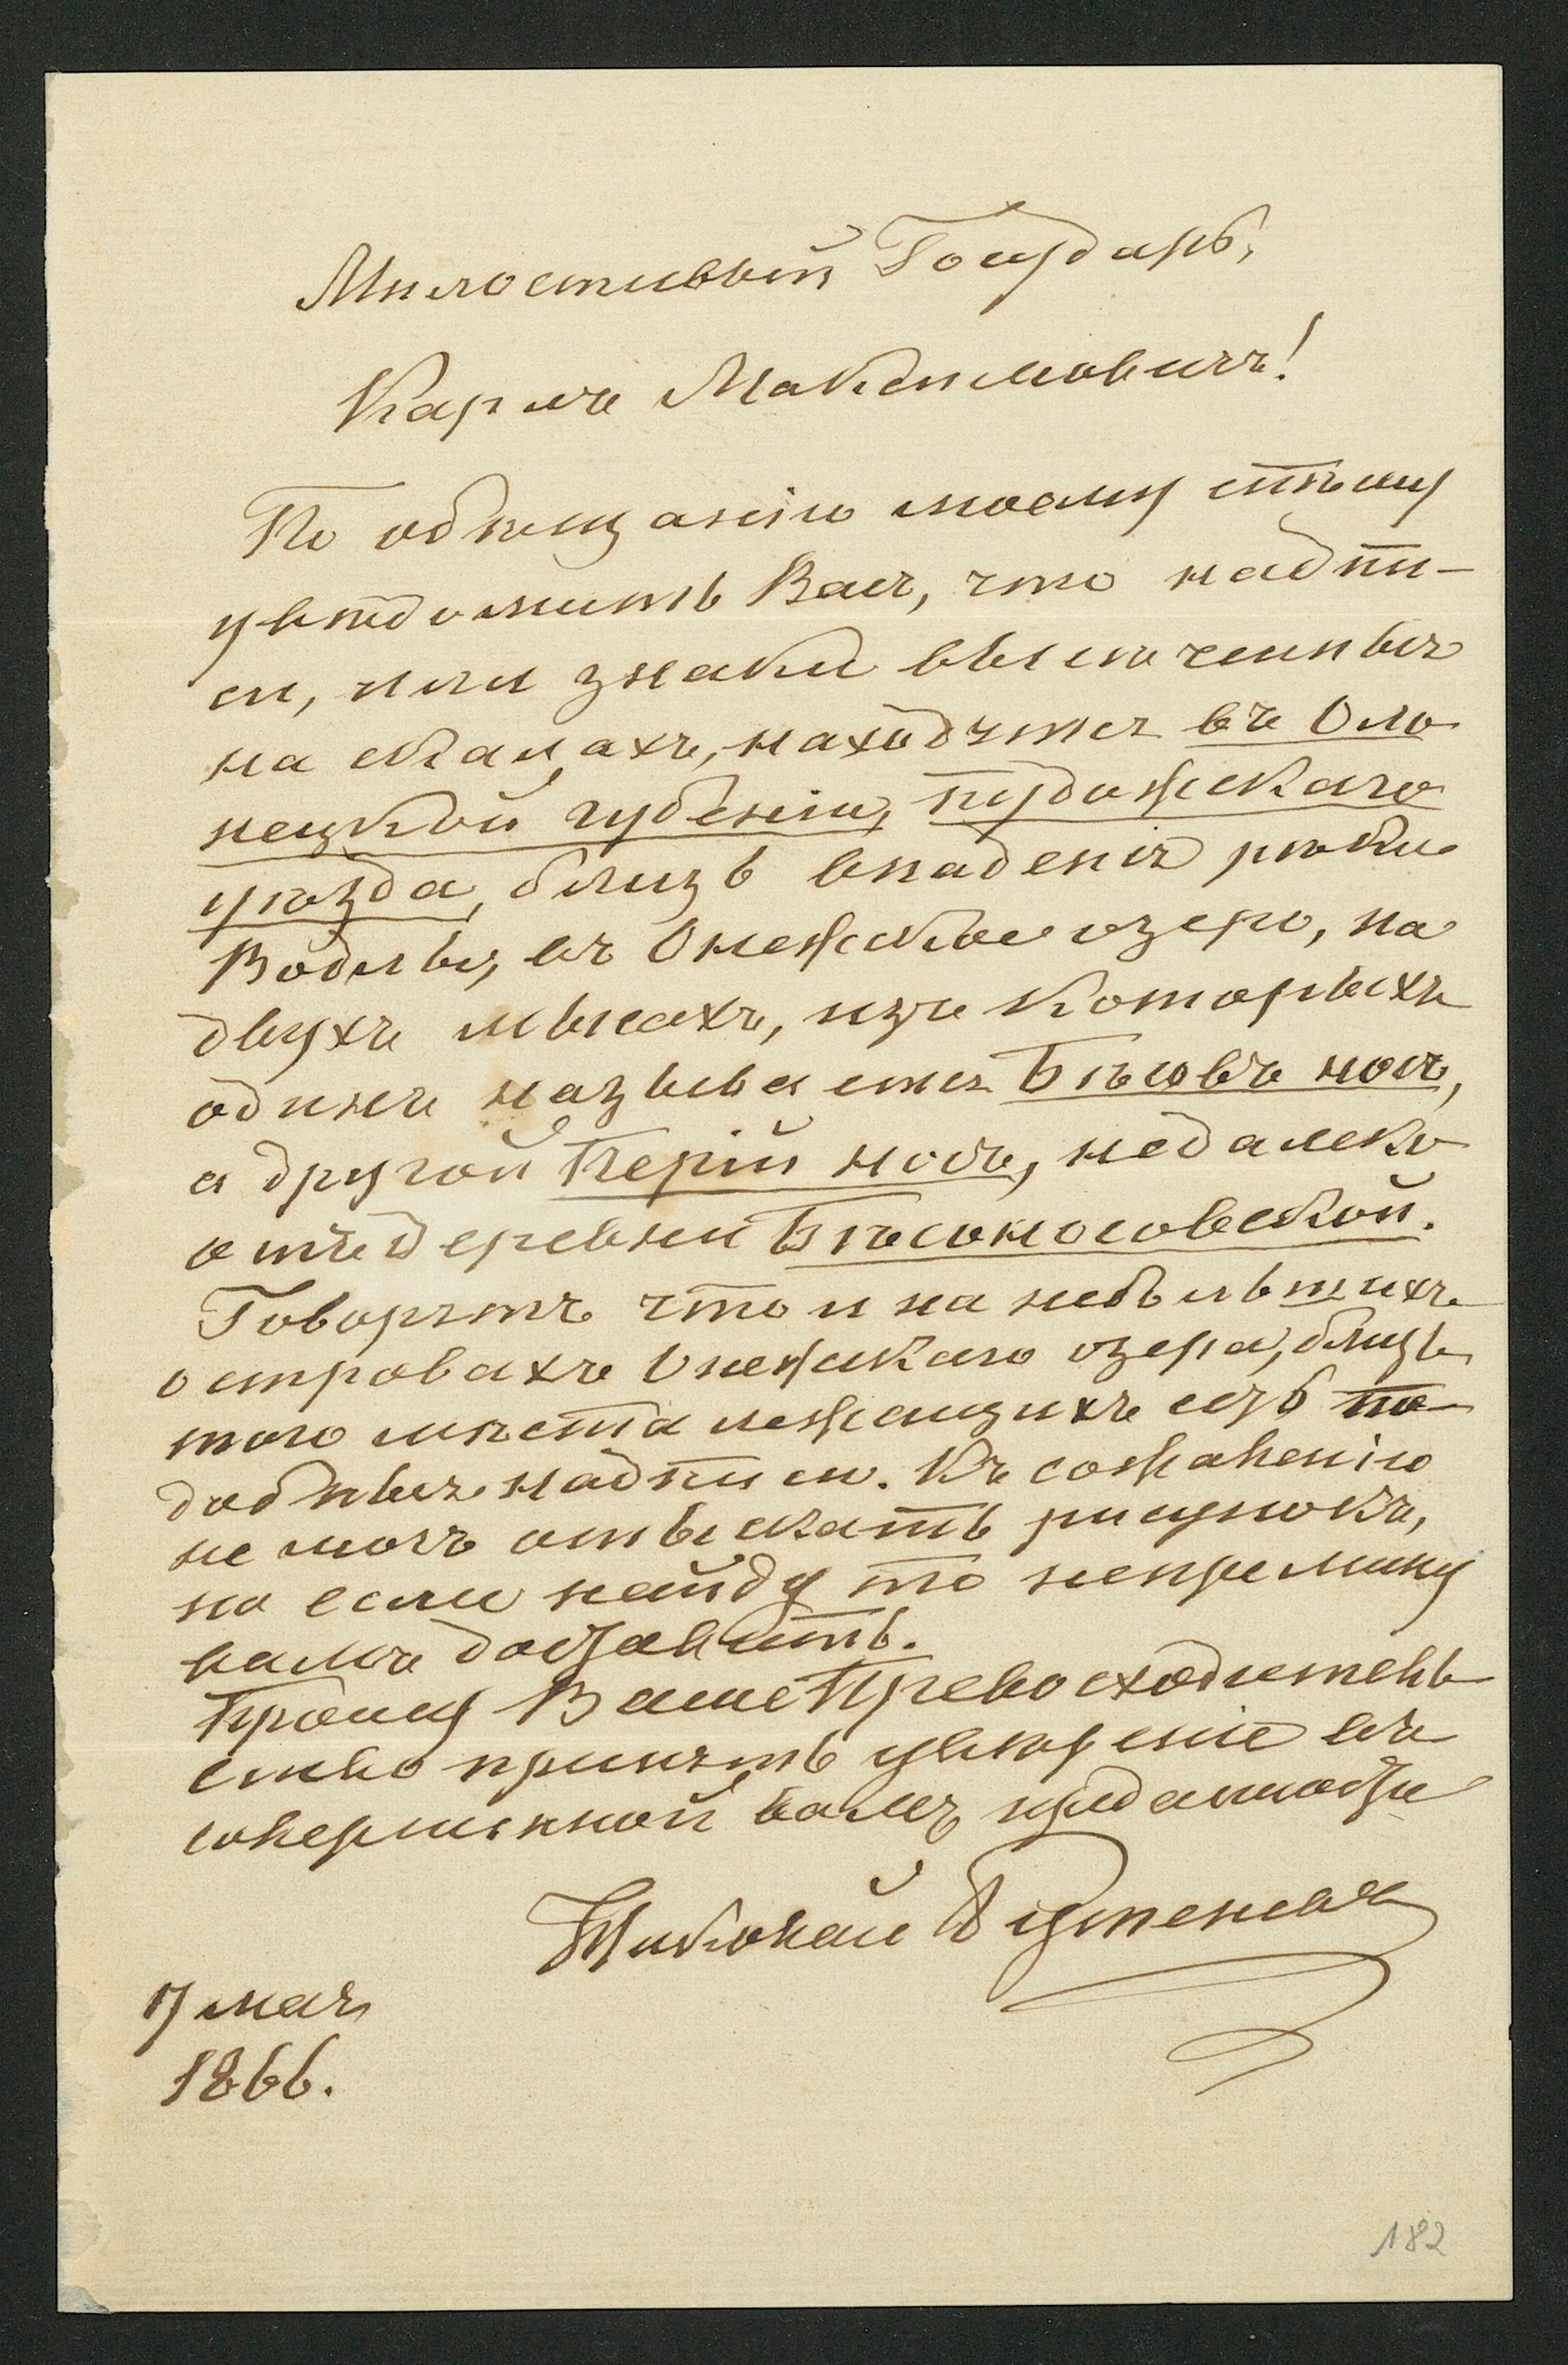 Милостивый Государь,
Карлъ Максимовичъ!
По обѣщанію моему спѣшу
увѣдомить Васъ, что надпи-
си, или знаки высеченныя
на скалахъ, находятся въ Оло
нецкой губеніи, пудожскаго
уѣзда, близь впаденія рѣки
Водлы, въ Онежское озеро, на
двухъ мысахъ, изъ которыхъ
одинъ называется Бѣсовъ носъ,
а другой Перій носъ, недалеко
отъ деревни Бѣсоносовской.
Говорятъ что и на небольшихъ
островахъ Онежскаго озера, близь
того мѣста лежащихъ есть по
добныя надписи. Къ сожаленію
не могъ отыскать рисунокъ,
но если найду то непремину
вамъ доставить.
Прошу Ваше Превосходитель
ство принять увѣреніе въ
совершенной вамъ преданности
Николай Бутеневъ
17 мая
1866.
182